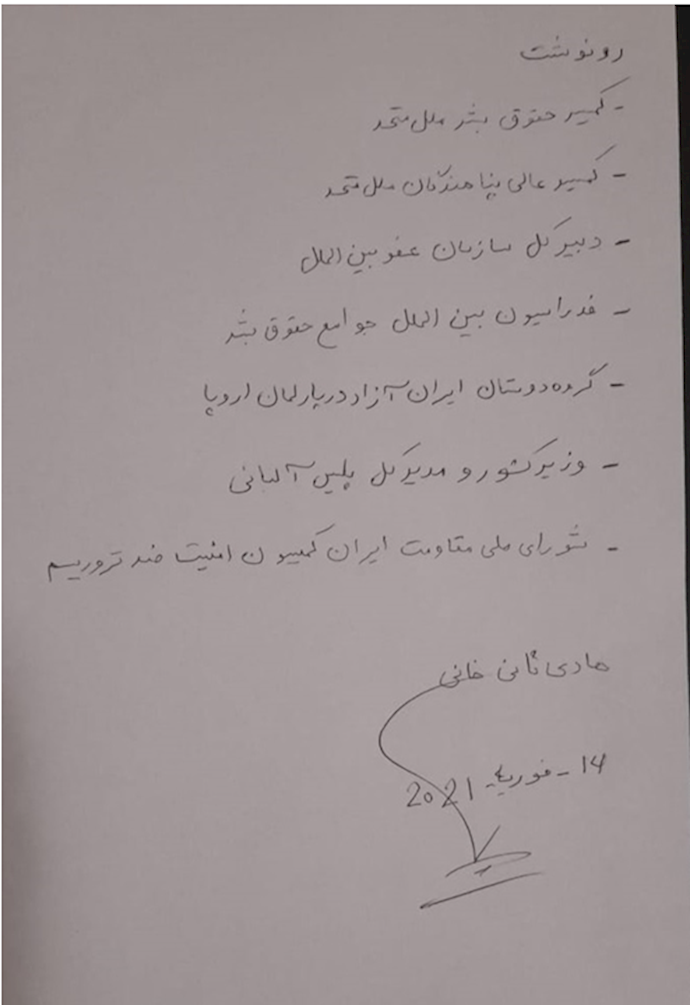 رونوشت
- کمیسر حقوق بشر ملل متحد
- کمیسر عالی پناهندگان ملل متحد
- دبیر کل سازمان عفو بین الملل
- فدراسیون بین الملل جوامع حقوق بشر
- گروه دوستان ایران آزاد در پارلمان اروپا
- وزیر کشور و مدیر کل پلیس آلبانی
- شورای ملی مقاومت ایران کمیسیون امنیت ضد تروریسم
هادی ثانی خانی
۱۴ - فوریه 2021